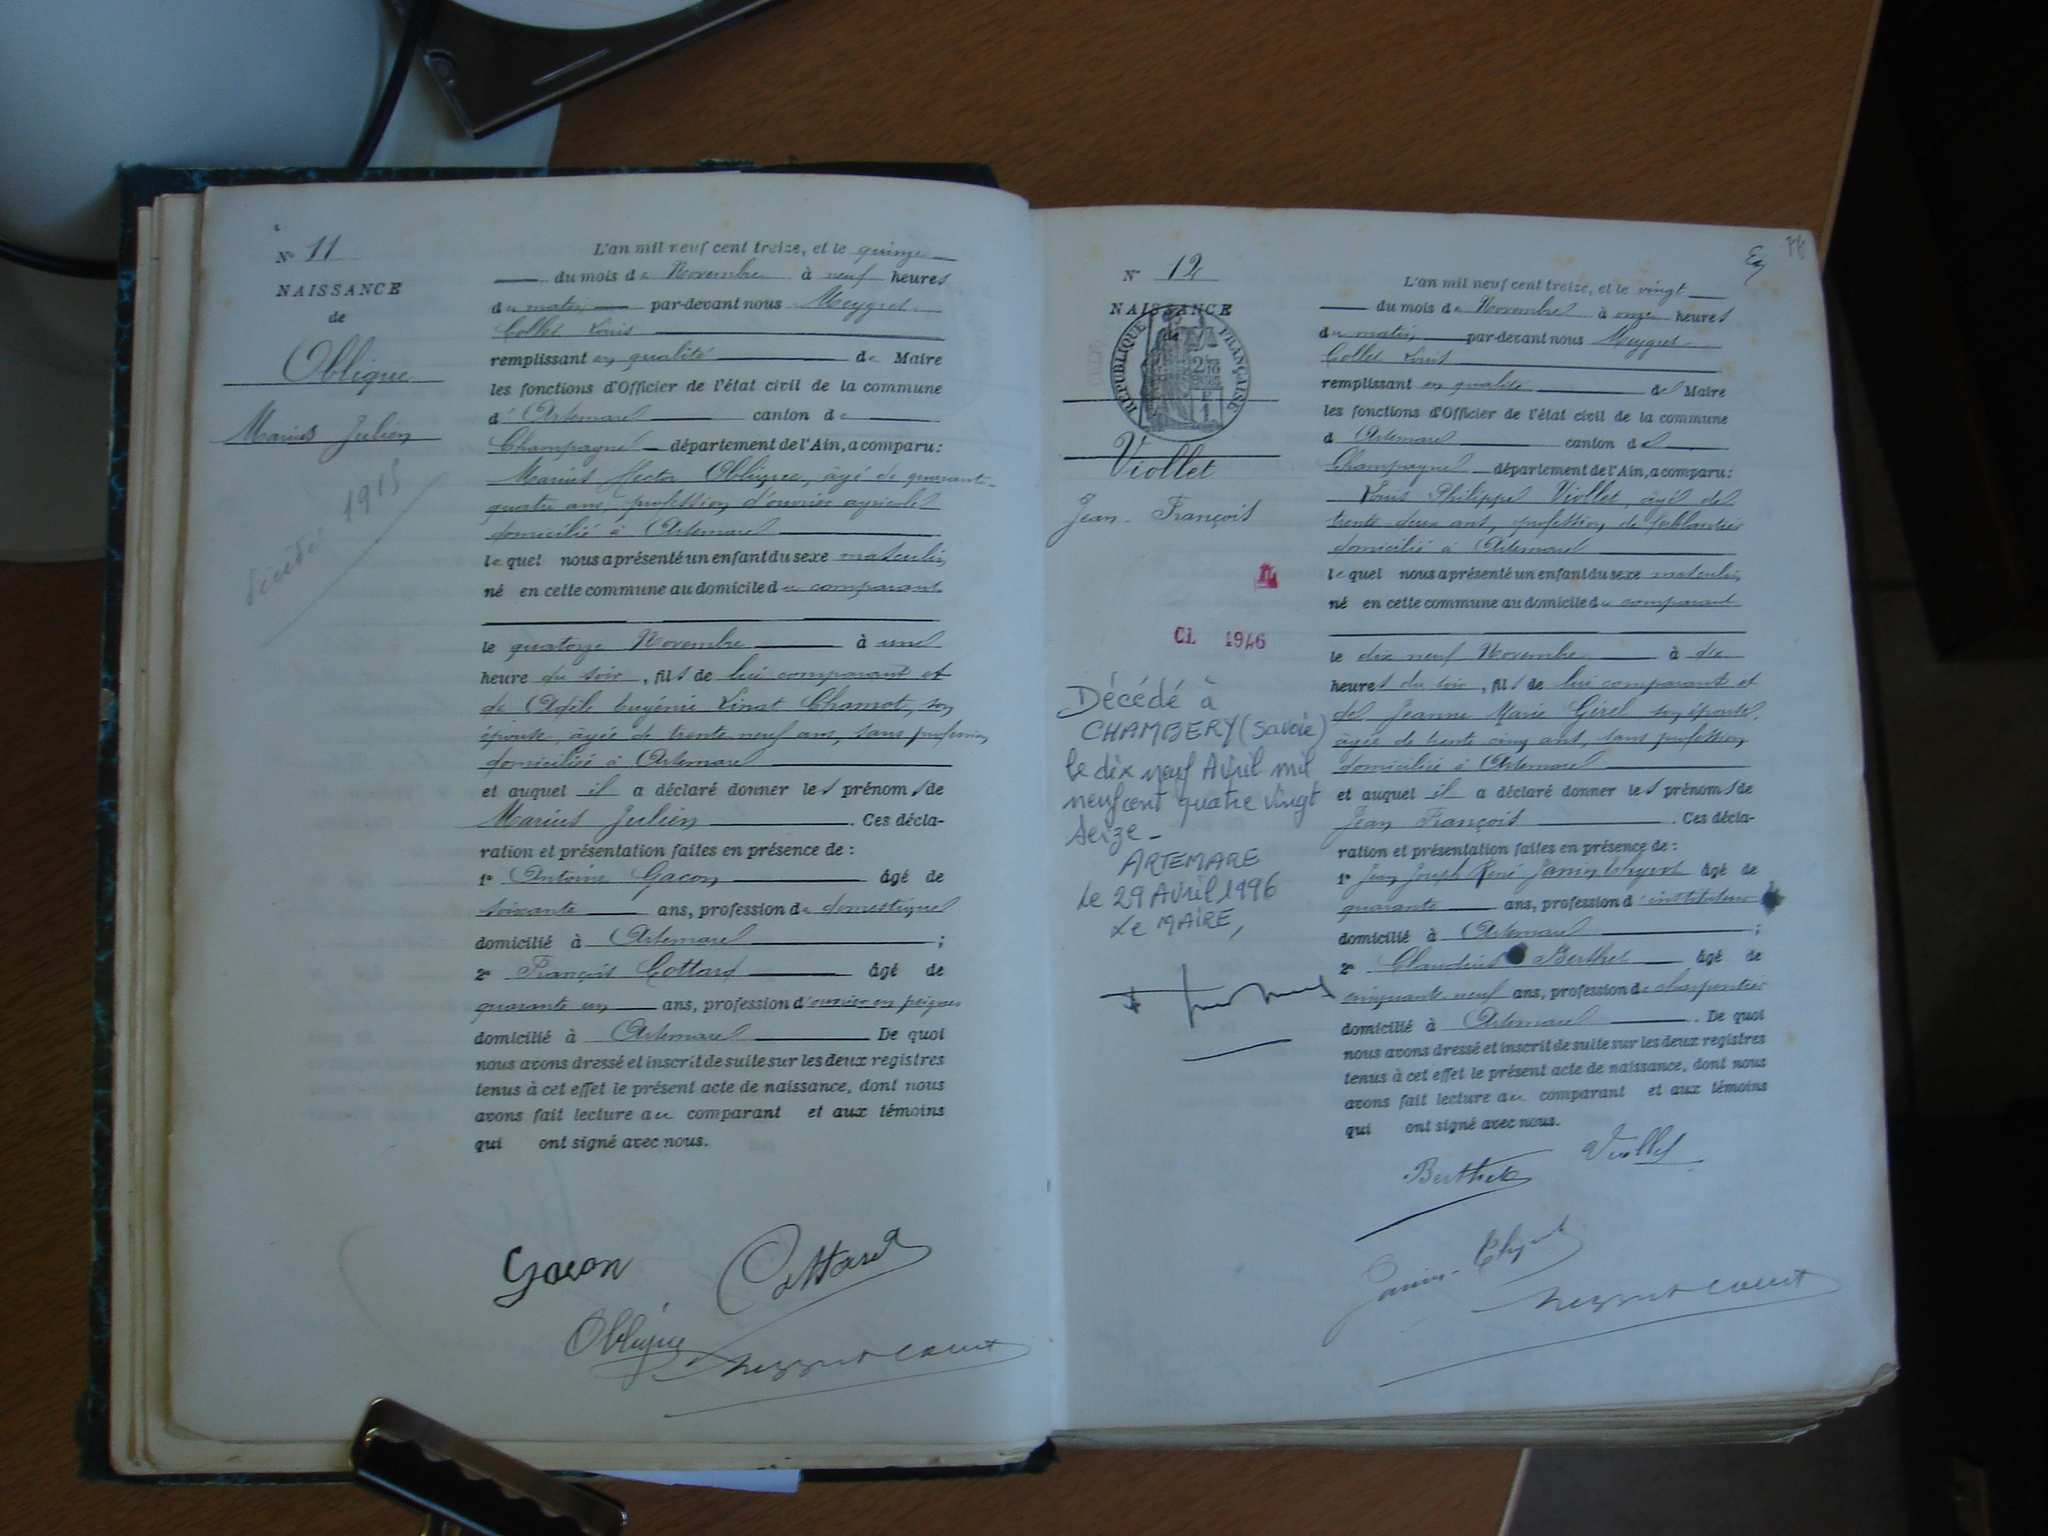 N° 11
NAISSANCE
de
Oblique
Marius Julien
décédé 1915
L'an mil neuf cent treize, et le quinze
du mois de Novembre à neuf heures
du matin par-devant nous Meygret-
Collet Louis
remplissant en qualité de Maire
les fonctions d'Officier de l'état civil de la commune
d'Artemare canton de
Champagne département de l'Ain, a comparu:
Marius Hector Oblique, âgé de quarante-
quatre ans, profession d'ouvrier agricole
domicilié à Artemare
lequel nous a présenté un enfant du sexe masculin
né en cette commune au domicile du comparant
le quatorze Novembre à une
heure du soir, fils de lui comparant et
de Adèle Eugénie Chamot, son
épouse, âgée de trente neuf ans, sans profession
domiciliée à Artemare
et auquel il a déclaré donner les prénoms de
Marius Julien. Ces décla-
ration et présentation faites en présence de :
1° Antoine Gacon âgé de
soixante ans, profession de domestique
domicilié à Artemare ;
2° François Cottard âgé de
quarante un ans, profession d'ouvrier en peignes
domicilié à Artemare. De quoi
nous avons dressé et inscrit de suite sur les deux registres
tenus à cet effet le présent acte de naissance, dont nous
avons fait lecture au comparant et aux témoins
qui ont signé avec nous.
Gacon Cottard
Oblique
N° 12
NAISSANCE
de
RÉPUBLIQUE FRANÇAISE
Viollet
Jean-François
CL 1946
Décédé à
CHAMBERY (Savoie)
le dix neuf Avril mil
neuf cent quatre vingt
seize -
ARTEMARE
le 29 Avril 1996
Le MAIRE,
L'an mil neuf cent treize, et le vingt
du mois de Novembre à onze heures
du matin par-devant nous Meygret-
Collet Louis
remplissant en qualité de Maire
les fonctions d'Officier de l'état civil de la commune
d Artemare canton de
Champagne département de l'Ain, a comparu:
Louis Philippe Viollet, âgé de
trente deux ans, profession de ferblantier
domicilié à Artemare
lequel nous a présenté un enfant du sexe masculin
né en cette commune au domicile du comparant
le dix neuf Novembre à dix
heures du soir, fils de lui comparant et
de Jeanne Marie Girel son épouse,
âgée de trente cinq ans, sans profession
domiciliée à Artemare
et auquel il a déclaré donner les prénoms de
Jean François. Ces décla-
ration et présentation faites en présence de :
1° Jean Joseph René Janin âgé de
quarante ans, profession d'instituteur
domicilié à Artemare ;
2° Claudius Berthet âgé de
cinquante neuf ans, profession de charpentier
domicilié à Artemare. De quoi
nous avons dressé et inscrit de suite sur les deux registres
tenus à cet effet le présent acte de naissance, dont nous
avons fait lecture au comparant et aux témoins
qui ont signé avec nous.
Berthet Viollet
Janin-